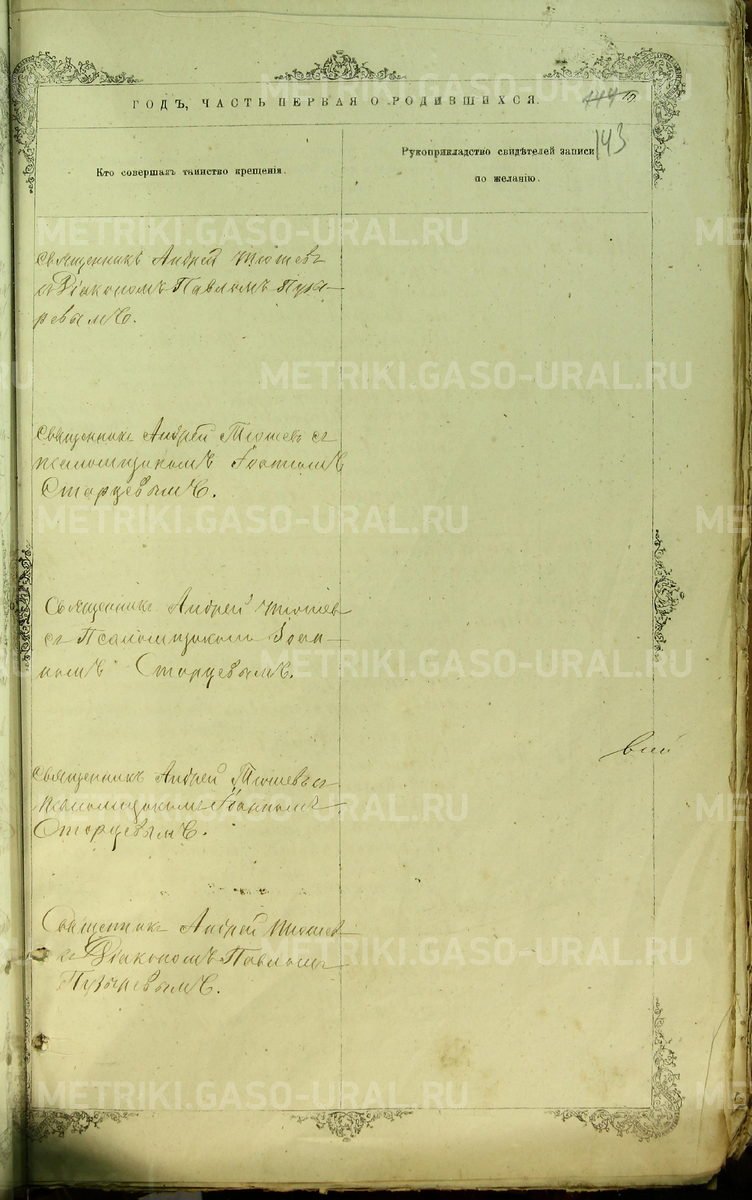 ГОДЪ, ЧАСТЬ ПЕРВАЯ О РОДИВШИХСЯ.
143
Кто совершалъ таинство крещенія.
Рукоприкладство свидѣтелей записи
по желанію.
Священникъ Андрей Тюшев
съ Діакономъ Павломъ Пузы-
ревымъ.
Священникъ Андрей Тюшевъ съ
псаломщикомъ Іоанномъ
Старцевымъ.
Священникъ Андрей Тюшев
съ Псаломщикомъ Іоан-
номъ Старцевымъ.
Священникъ Андрей Тюшевъ съ
псаломщикомъ Іоанномъ
Старцевымъ.
Священникъ Андрей Тюшев
съ Діакономъ Павломъ
Пузыревымъ.
METRIKI.GASO-URAL.RU